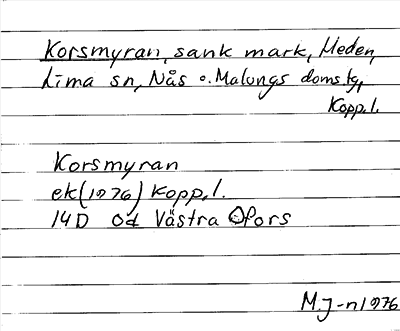 Korsmyran, sank mark, Heden,
Lima sn, Nås o. Malungs doms tg,
Kopp.l.
Korsmyran
ek (1976) Kopp.l.
14D 0d Västra Ofors
M.J-n 1976